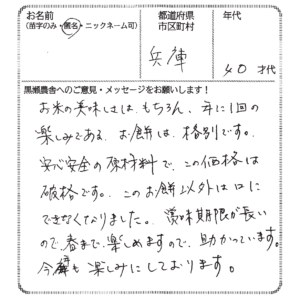 お名前
(苗字のみ・匿名・ニックネーム可)
都道府県
市区町村
年代
兵庫
40才代
黒瀬農舎へのご意見・メッセージをお願いします!
お米の美味しさは、もちろん、年に1回の
楽しみである、お餅は、格別です。
安心安全の原材料で、この価格は
破格です。このお餅以外は口に
できなくなりました。賞味期限が長い
ので、春まで、楽しめますので、助かっています。
今年も楽しみにしております。